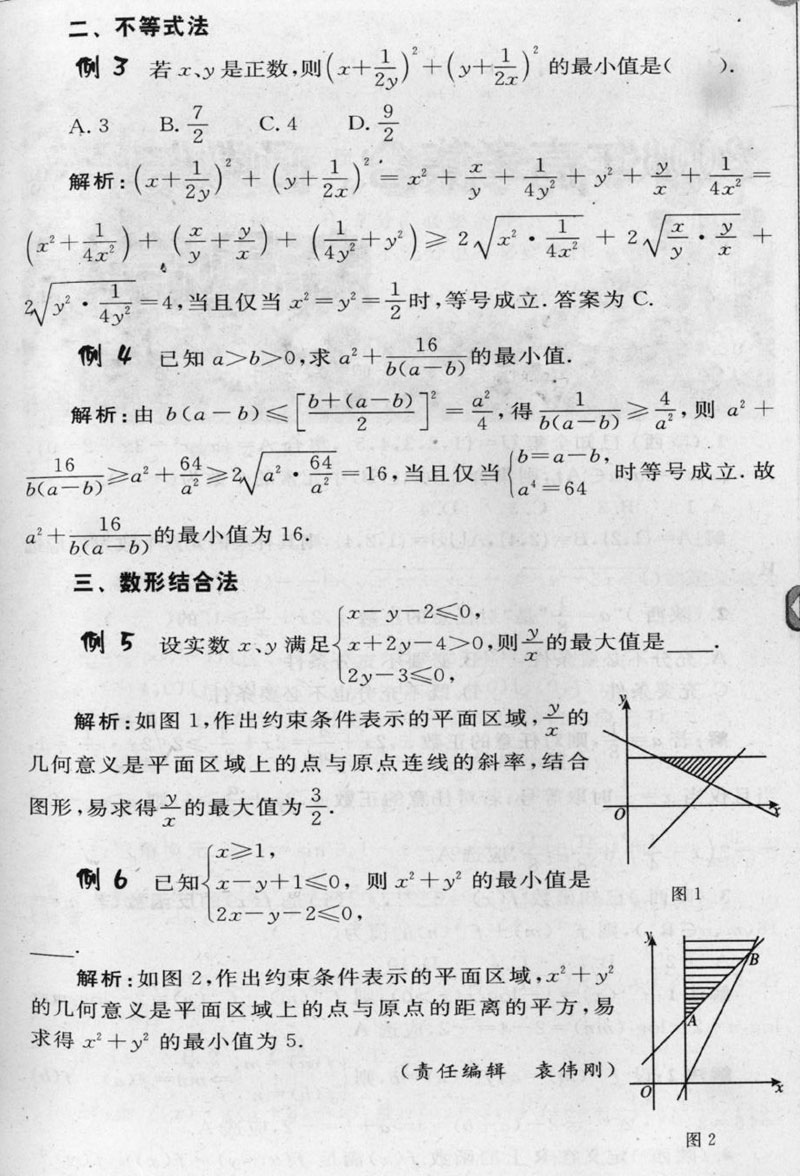 二、不等式法
例3 若 x、y 是正数,则(x+1/(2y))²+(y+1/(2x))² 的最小值是(  ).
A. 3  B. 7/2  C. 4  D. 9/2
解析:(x+1/(2y))²+(y+1/(2x))²=x²+x/y+1/(4y²)+y²+y/x+1/(4x²)=
(x²+1/(4x²))+(x/y+y/x)+(1/(4y²)+y²)≥2√(x²·1/(4x²))+2√(x/y·y/x)+
2√(y²·1/(4y²))=4,当且仅当 x²=y²=1/2时,等号成立.答案为 C.
例4 已知 a>b>0,求 a²+16/(b(a-b))的最小值.
解析:由 b(a-b)≤[(b+(a-b))/2]²=a²/4,得1/(b(a-b))≥4/a²,则 a²+
16/(b(a-b))≥a²+64/a²≥2√(a²·64/a²)=16,当且仅当{b=a-b, a⁴=64 时等号成立.故
a²+16/(b(a-b))的最小值为 16.
三、数形结合法
例5 设实数 x、y 满足{x-y-2≤0, x+2y-4>0, 2y-3≤0, 则y/x的最大值是____.
解析:如图 1,作出约束条件表示的平面区域,y/x的
几何意义是平面区域上的点与原点连线的斜率,结合
图形,易求得y/x的最大值为3/2.
y
O
x
图 1
例6 已知{x≥1, x-y+1≤0, 2x-y-2≤0, 则 x²+y² 的最小值是
____.
解析:如图 2,作出约束条件表示的平面区域,x²+y²
的几何意义是平面区域上的点与原点的距离的平方,易
求得 x²+y² 的最小值为 5.
(责任编辑 袁伟刚)
y
B
A
O
x
图 2